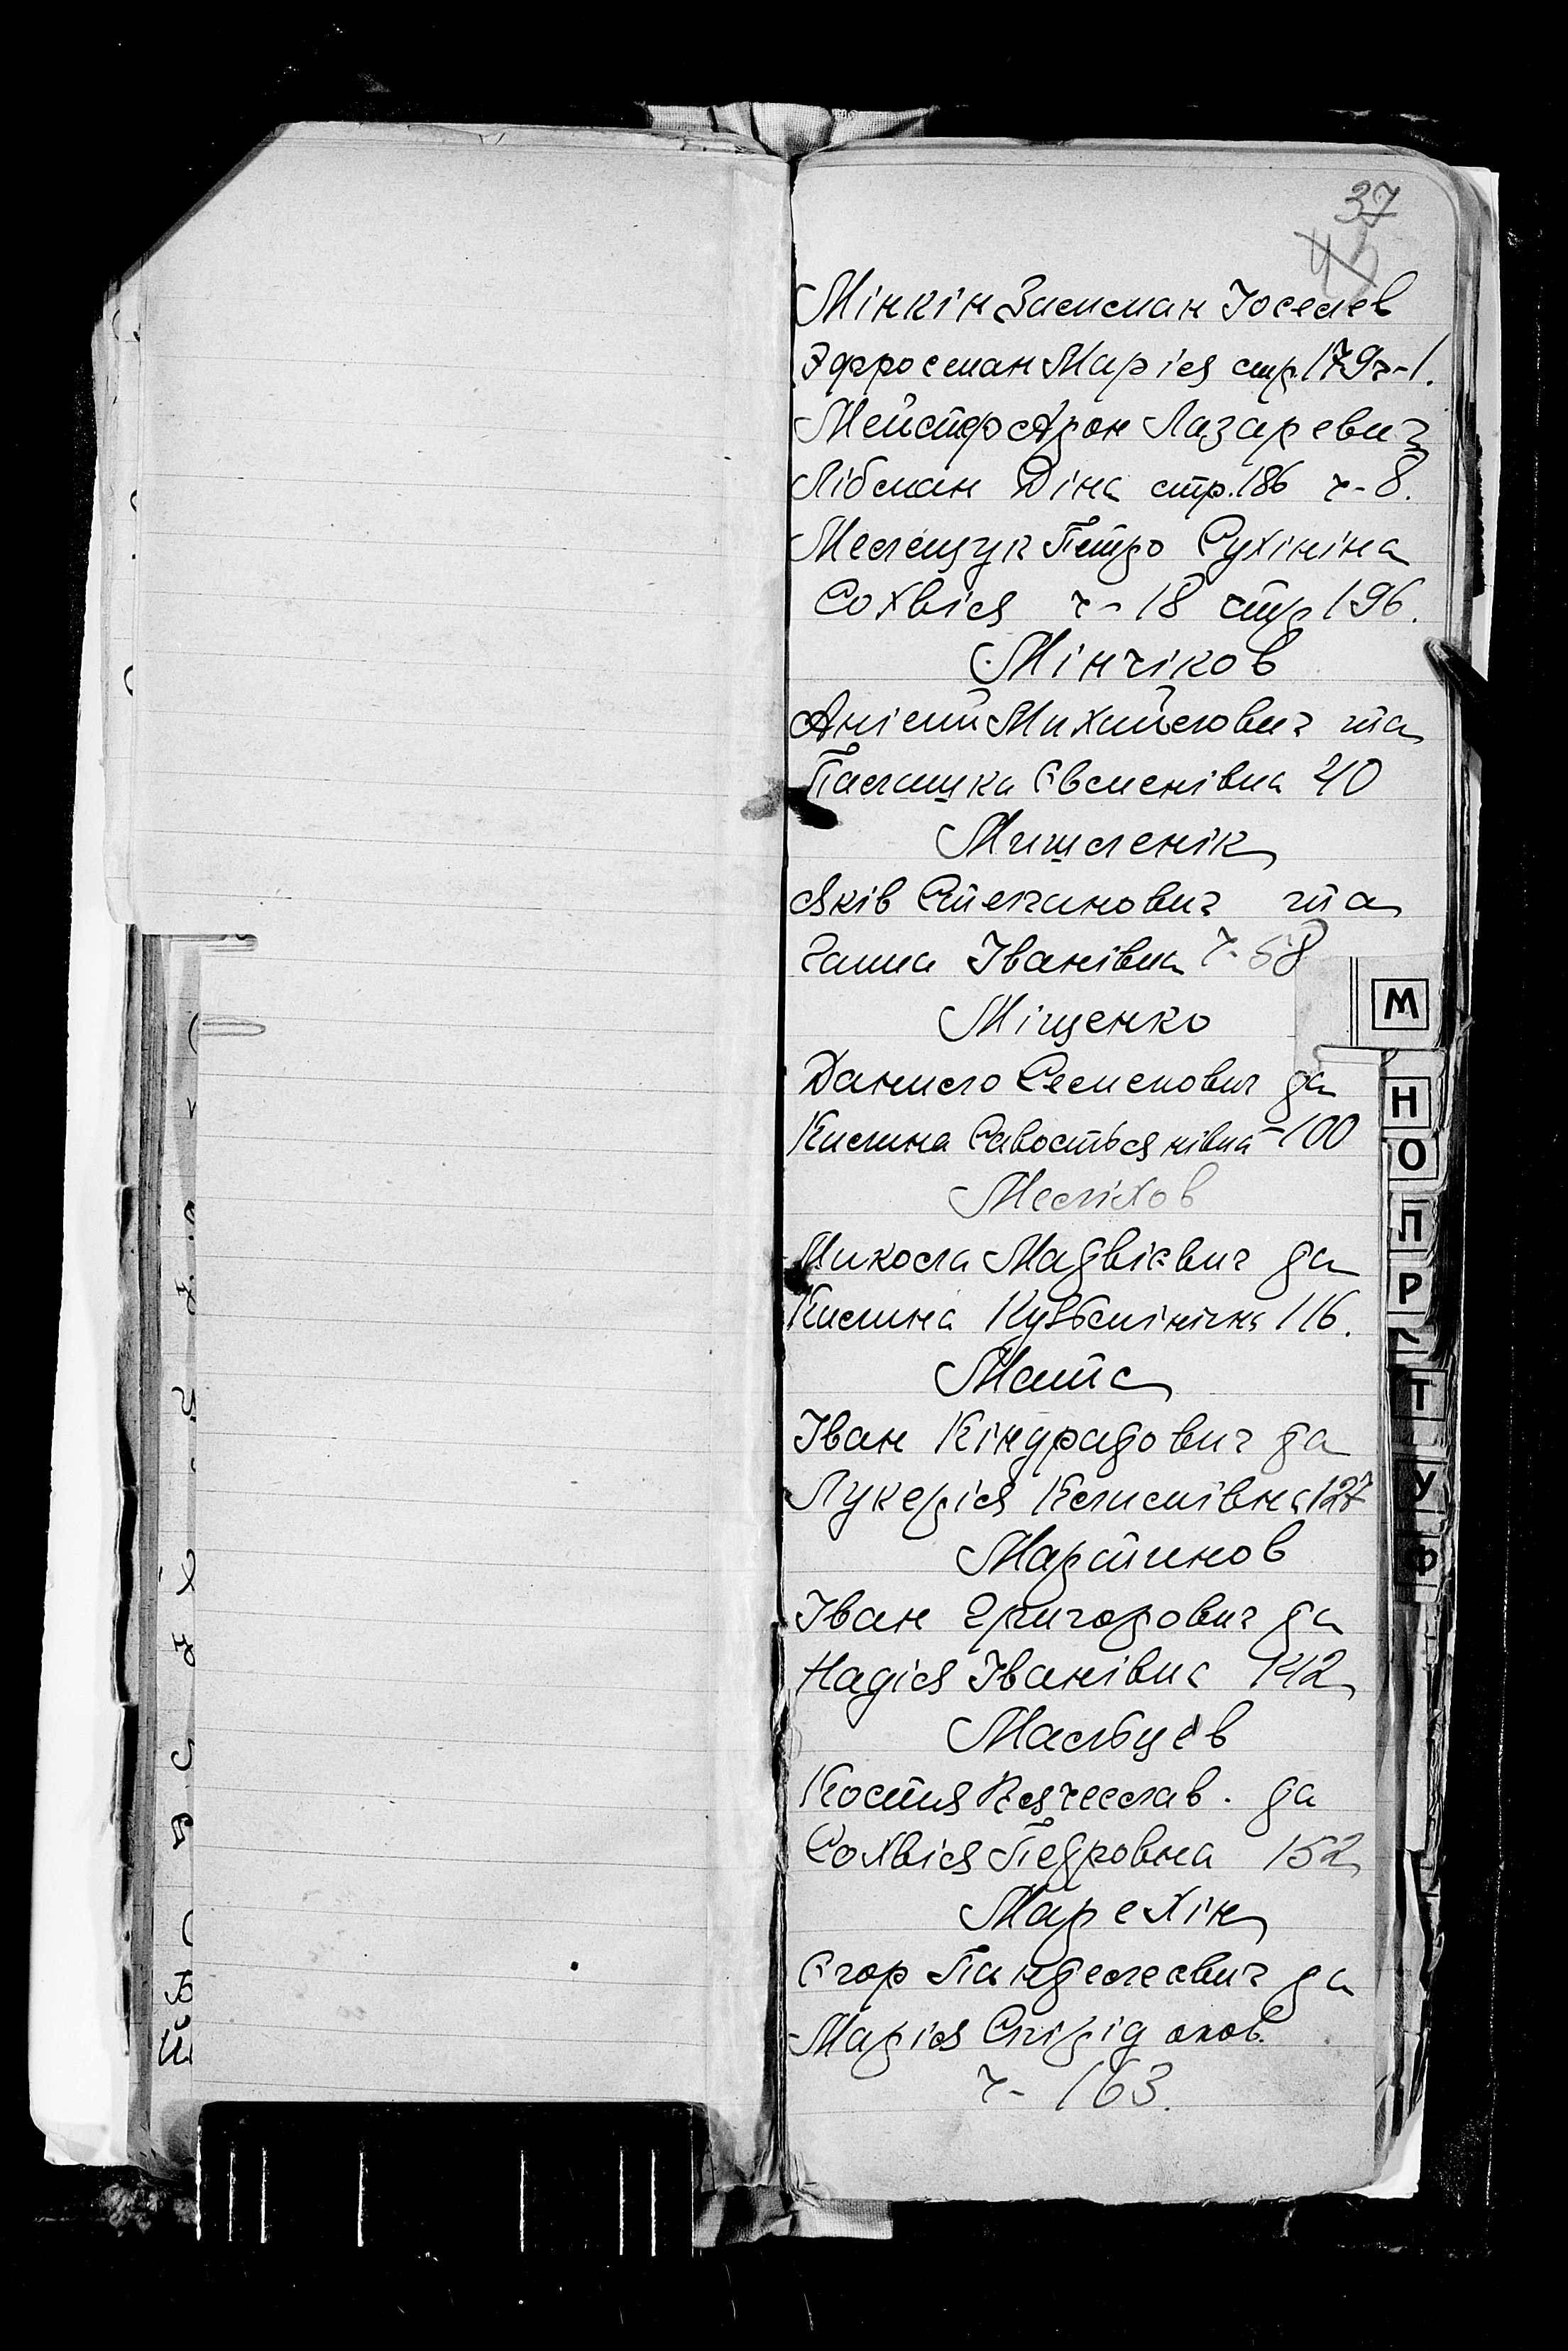 37
45
Мінкін Залман Іоселев
Эфросман Марія стр. 179 ч-1.
Мейстер Арон Лазаревич
Лібман Діна стр. 186 ч-8.
Мелещук Петро Сухініна
Сохвія ч-18 стр 196.
Мінчіков
Анісий Михайлович та
Палашка Євменівна 40
Мишленік
Яків Степанович та
Ганна Іванівна ч-58
Міщенко
Данило Семенович да
Килина Савостьянівна-100
Меліхов
Микола Мадвієвич да
Килина Кузьмінічна 116.
Мата
Іван Кіндрадович да
Лукерія Климівна 127
Мартинов
Іван Григорович да
Надія Іванівна 142
Мальцев
Костя Вячеслав. да
Сохвія Педровна 152
Марехін
Єгор Панделеєвич да
Марія Спірідонов.
ч- 163.
М
Н
О
П
Р
Т
У
Ф